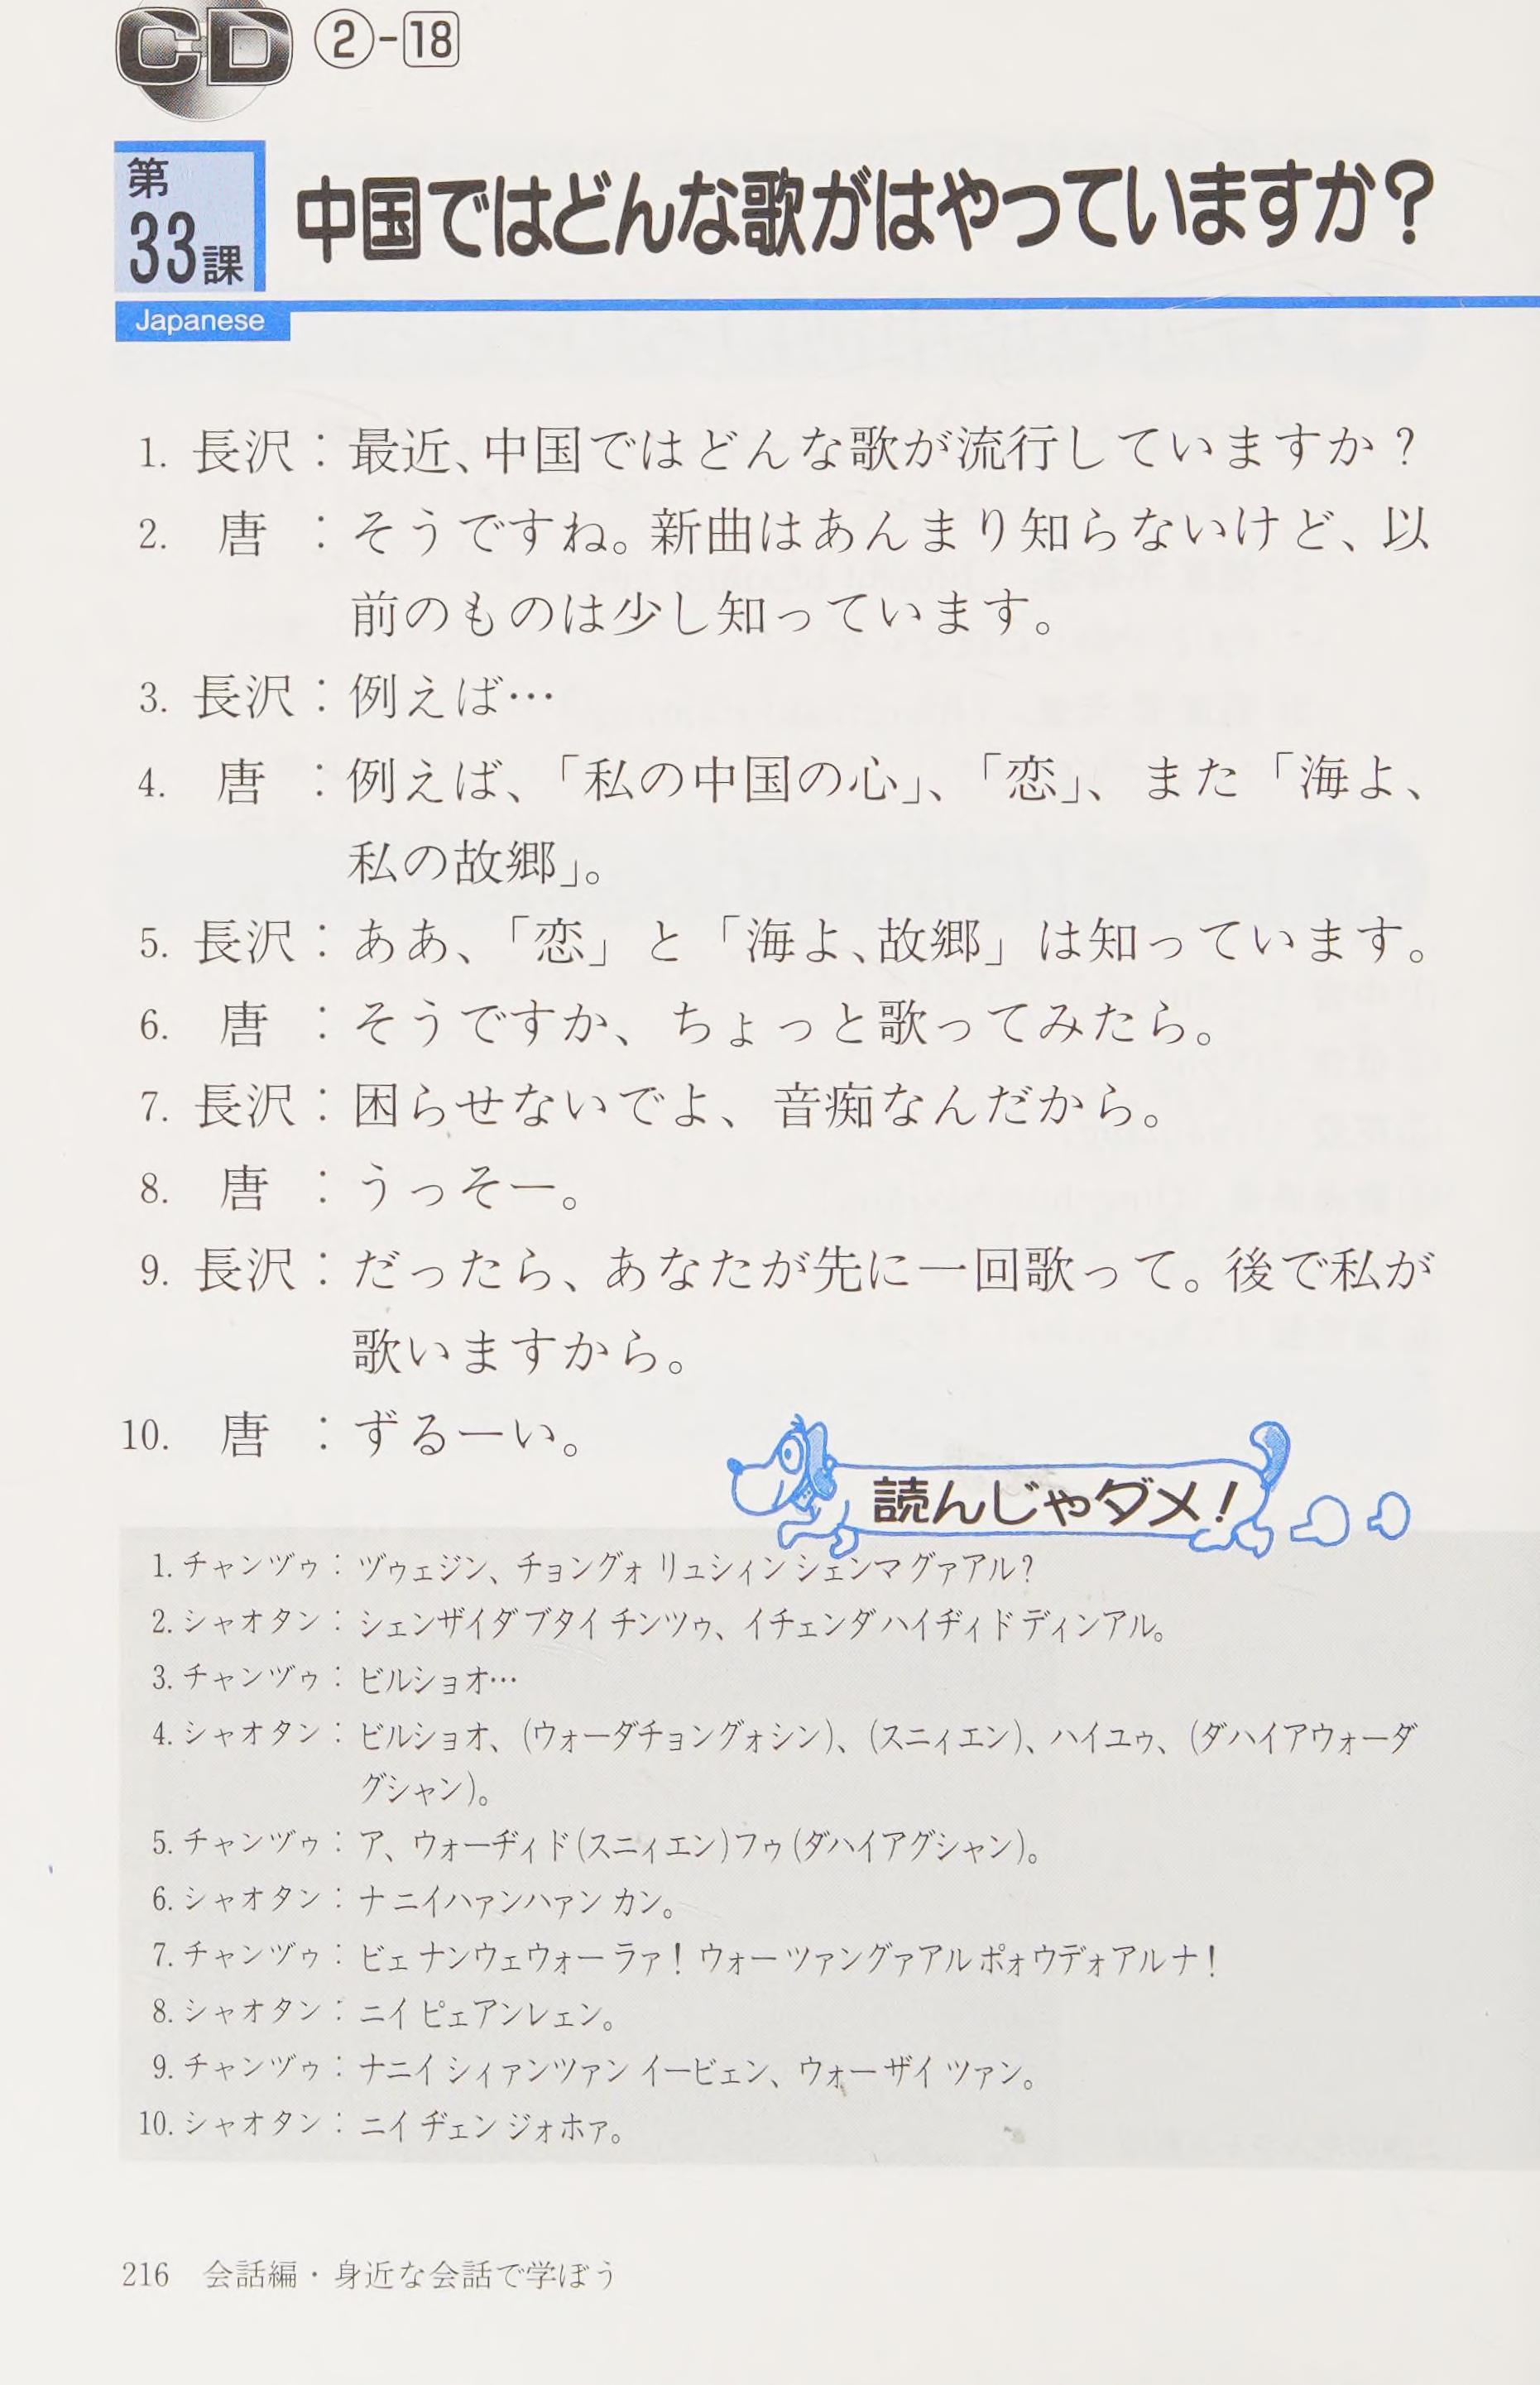 CD ②-18
第33課 中国ではどんな歌がはやっていますか?
Japanese
1. 長沢：最近、中国ではどんな歌が流行していますか？
2. 唐：そうですね。新曲はあんまり知らないけど、以
前のものは少し知っています。
3. 長沢：例えば…
4. 唐：例えば、「私の中国の心」、「恋」、また「海よ、
私の故郷」。
5. 長沢：ああ、「恋」と「海よ、故郷」は知っています。
6. 唐：そうですか、ちょっと歌ってみたら。
7. 長沢：困らせないでよ、音痴なんだから。
8. 唐：うっそー。
9. 長沢：だったら、あなたが先に一回歌って。後で私が
歌いますから。
10. 唐：ずるーい。
読んじゃダメ！
1. チャンヅゥ：ヅゥェジン、チョングォ リュシィン シェンマ グァアル？
2. シャオタン：シェンザイダ ブタイ チンツゥ、イチェンダ ハイヂィド ディンアル。
3. チャンヅゥ：ビルショオ…
4. シャオタン：ビルショオ、(ウォーダチョングォシン)、(スニィエン)、ハイユゥ、(ダハイアウォーダ
グシャン)。
5. チャンヅゥ：ア、ウォーヂィド(スニィエン)フゥ(ダハイアグシャン)。
6. シャオタン：ナ ニイハァンハァン カン。
7. チャンヅゥ：ビェ ナンウェウォー ラァ！ ウォー ツァングァアル ポォウデォアル ナ！
8. シャオタン：ニイ ピェアンレェン。
9. チャンヅゥ：ナニイ シィァンツァン イービェン、ウォー ザイ ツァン。
10. シャオタン：ニイ ヂェン ジォホァ。
216 会話編・身近な会話で学ぼう